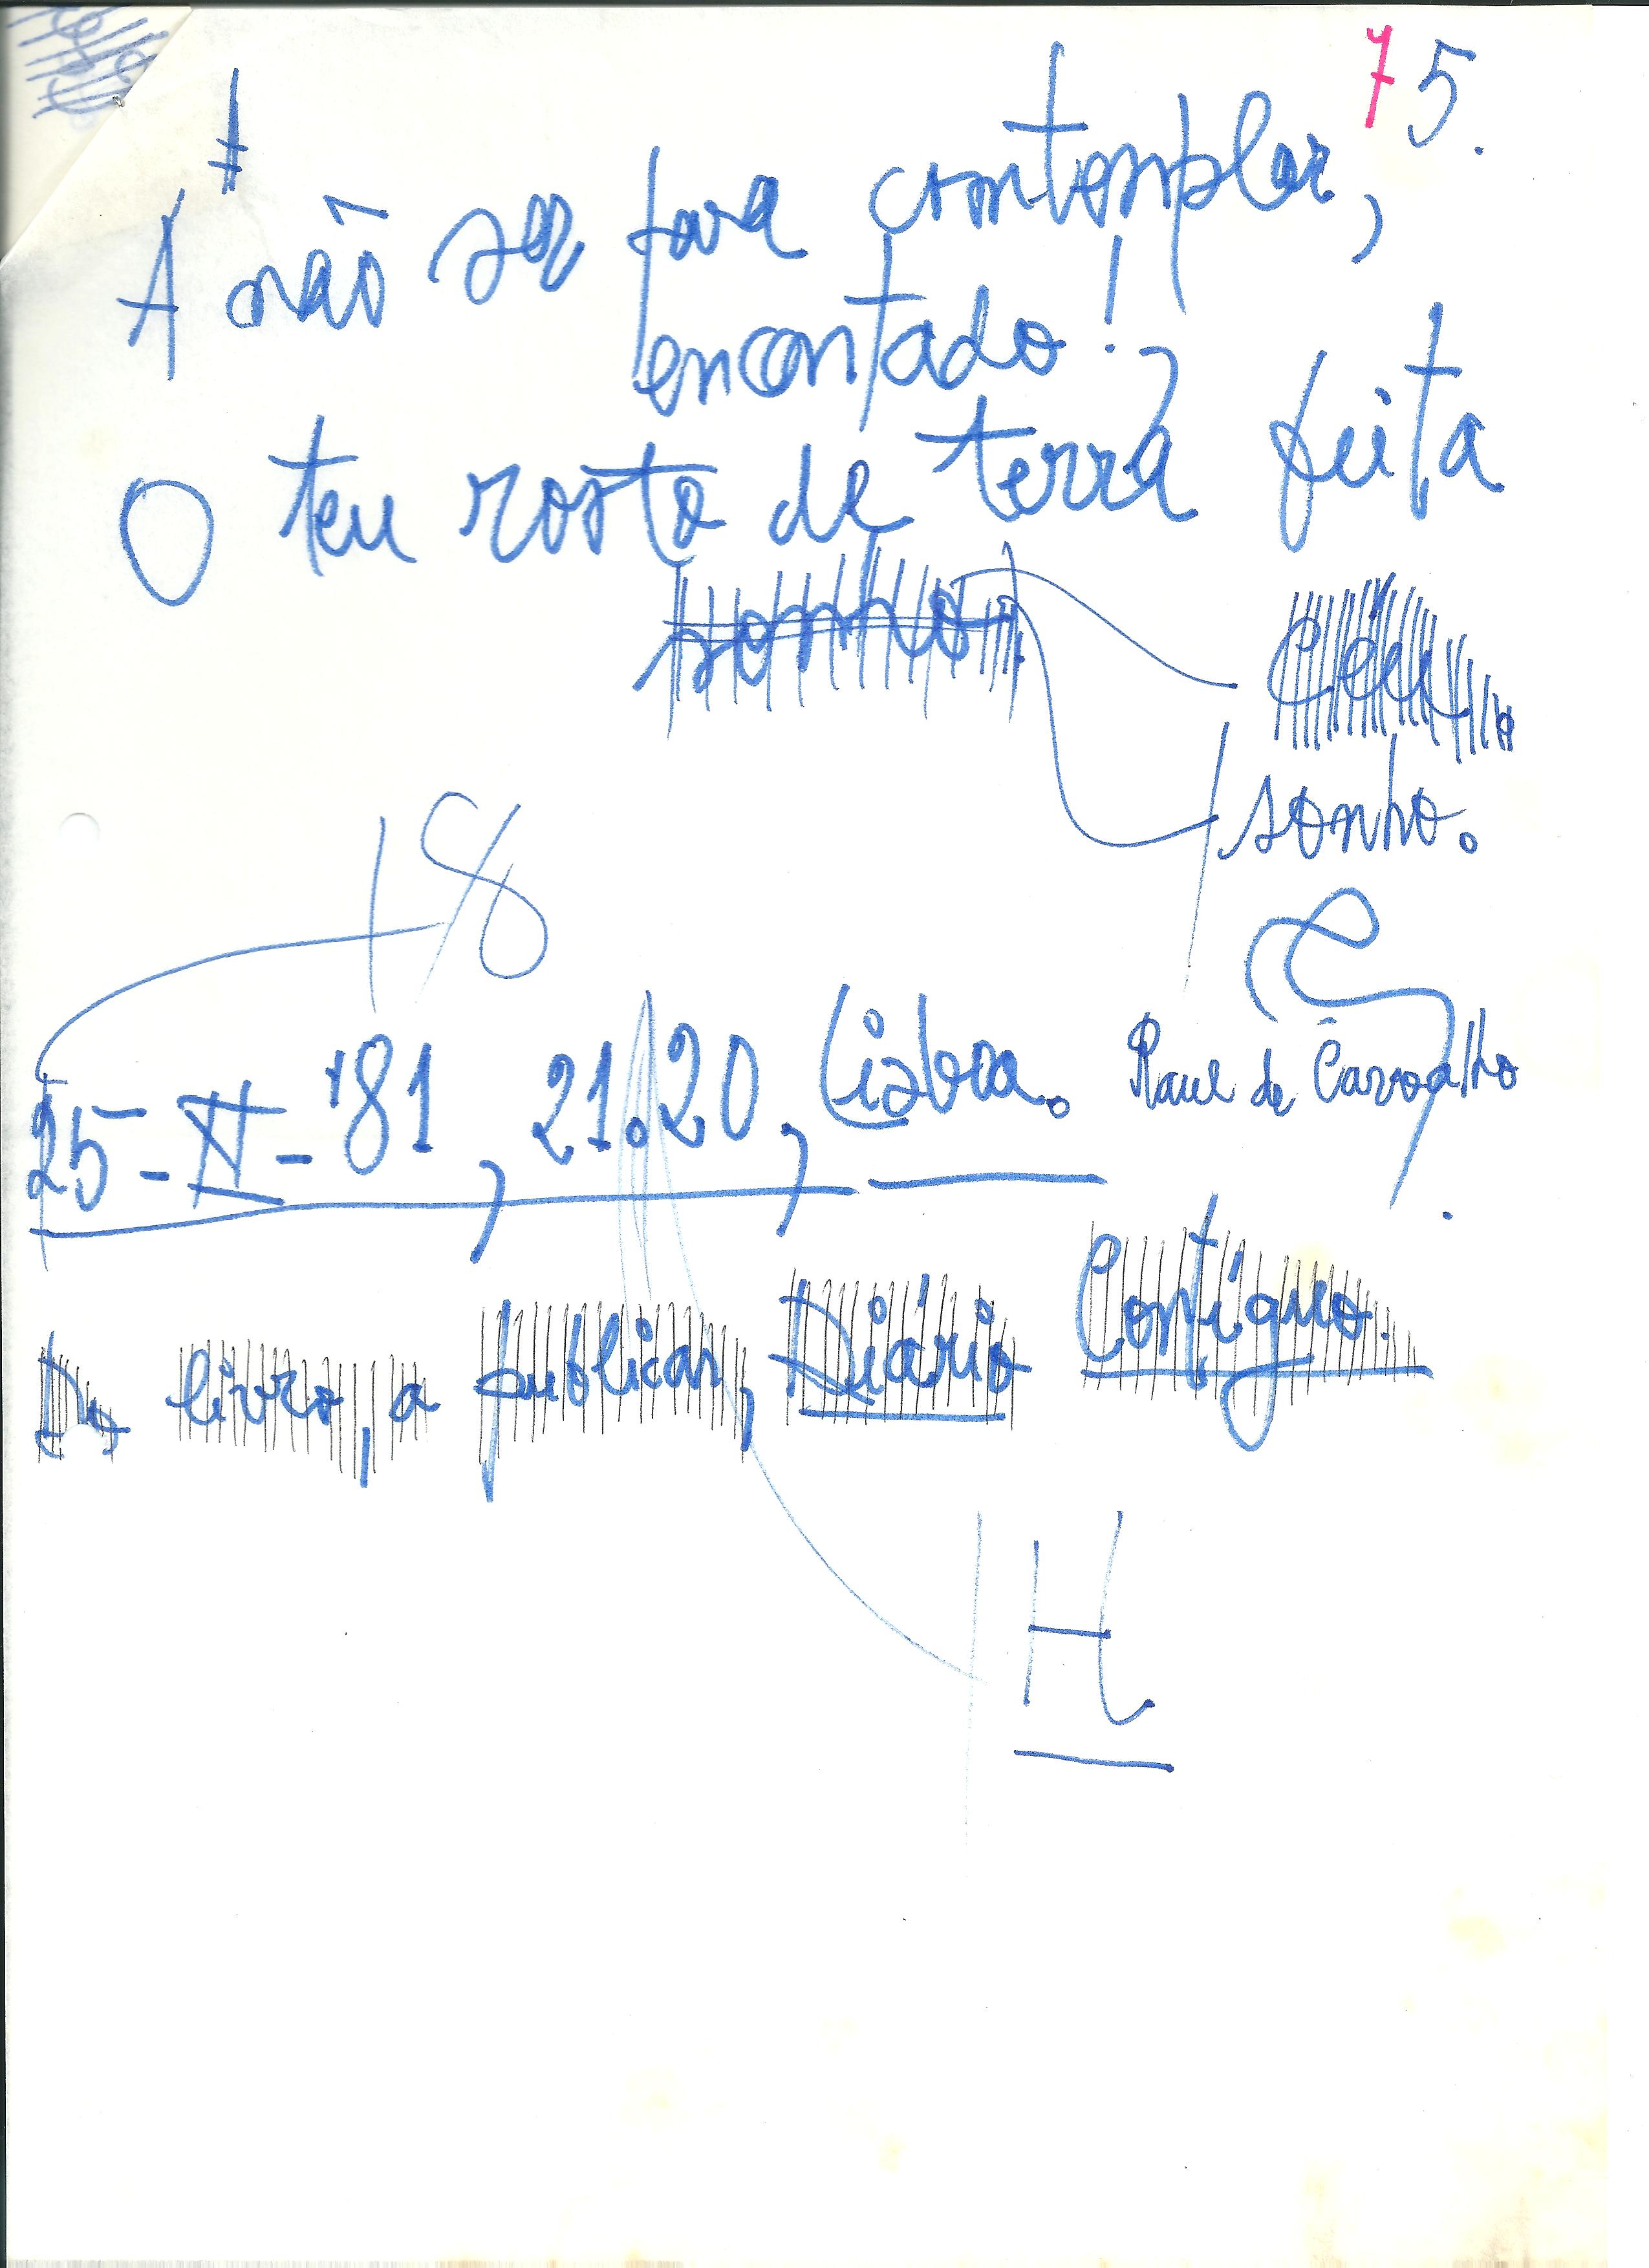 75.
A não ser para contemplar,
encantado!
O teu rosto de terra, feita
sonho
Céu.
sonho.
18
25-II-'81, 21.20, Lisboa. Raul de Carvalho
Do livro, a publicar, Diário Contíguo.
H